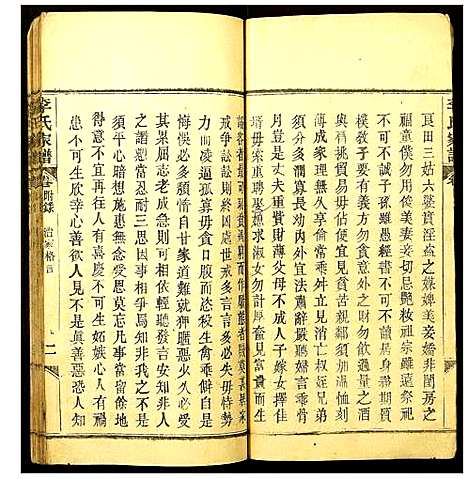 李氏家譜
良田三姑六婆實淫盜之媒婢美妾嬌非閨房之
福童僕勿用俊美妻妾切忌艷妝祖宗雖遠祭祀
不可不誠子孫雖愚經書不可不讀居身務期質
樸教子要有義方勿貪意外之財勿飲過量之酒
與肩挑貿易毋佔便宜見貧苦親鄰須加溫恤刻
薄成家理無久享倫常乖舛立見消亡叔侄兄弟
須分多潤寡長幼內外宜法肅辭嚴聽婦言乖骨
肉豈是丈夫重貲財薄父母不成人子嫁女擇佳
壻毋索重聘娶媳求淑女勿計厚奩見富貴而生
容者最可恥遇貧窮而作驕態者賤莫甚居家
戒爭訟訟則終凶處世戒多言言多必失毋恃勢
力而凌逼孤寡毋貪口腹而恣殺生禽乖僻自是
悔悞必多頹惰自甘家道難成狎昵惡少久必受
其累屈志老成急則可相依輕聽發言安知非人
之譖愬當忍耐三思因事相爭焉知非我之不是
須平心暗想施惠無念受恩莫忘凡事當留餘地
得意不宜再往人有喜慶不可生妒嫉心人有禍
患不可生欣幸心善欲人見不是真善惡恐人知
李氏家譜 卷 附錄 治家格言 二